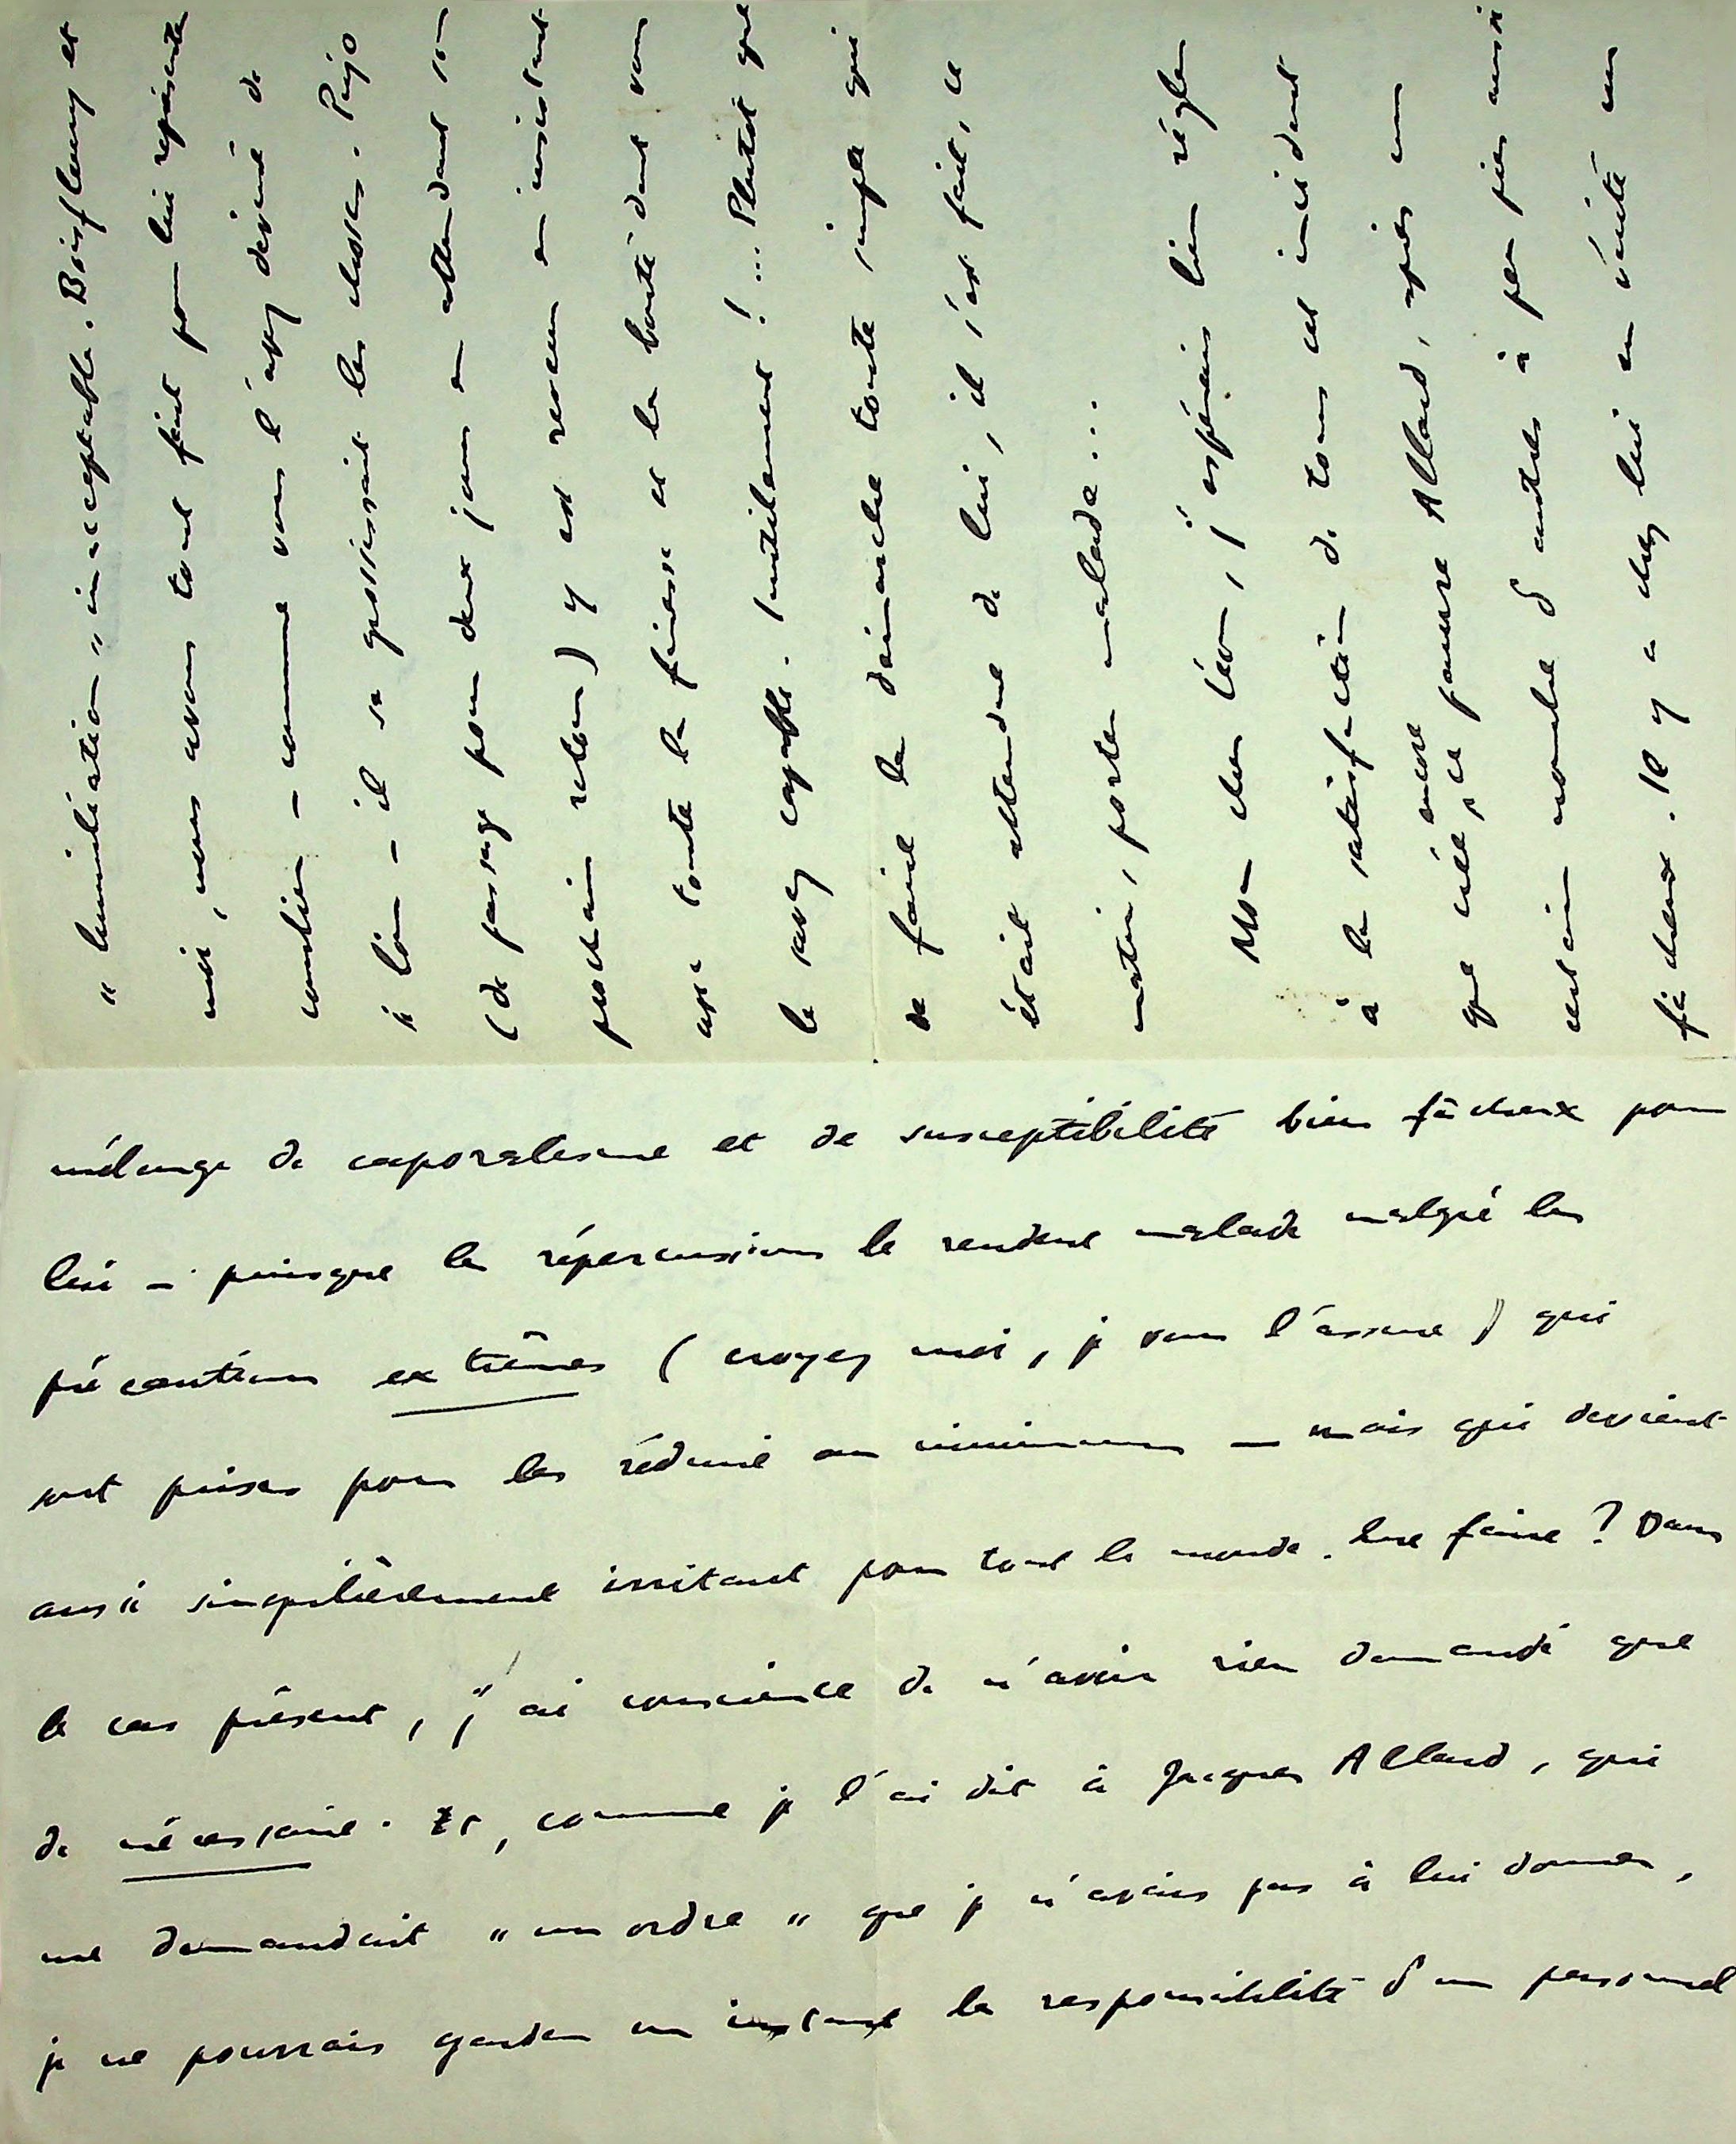 " humiliation " inacceptable. Boisfleury et
moi, nous avons tout fait pour lui représenter
combien – comme vous l'avez deviné de
si loin – il se grossissait les choses. Pujo
(de passage pour deux jours en attendant son
prochain retour) y est revenu en insistant
avec toute la finesse et la bonté dont vous
le savez capable. Inutilement !... Plutôt que
de faire la démarche toute simple qui
était attendue de lui, il s'est fait, ce
matin, porter malade...
Mon cher Léon, j'espérais bien régler
à la satisfaction de tous cet incident
que crée encore ce pauvre Allard, après un
certain nombre d'autres à peu près aussi
fâcheux. Il y a chez lui en vérité un
mélange de caporalisme et de susceptibilité bien fâcheux pour
lui – puisque les répercussions le rendent malade malgré les
précautions extrêmes (croyez moi, je vous l'assure) qui
sont prises pour les réduire au minimum – mais qui devient
aussi singulièrement irritant pour tout le monde. Que faire ? Dans
le cas présent, j'ai conscience de n'avoir rien demandé que
de nécessaire. Et, comme je l'ai dit à Jacques Allard, qui
me demandait " un ordre " que je n'avais pas à lui donner,
je ne pourrais garder un instant la responsabilité d'un personnel